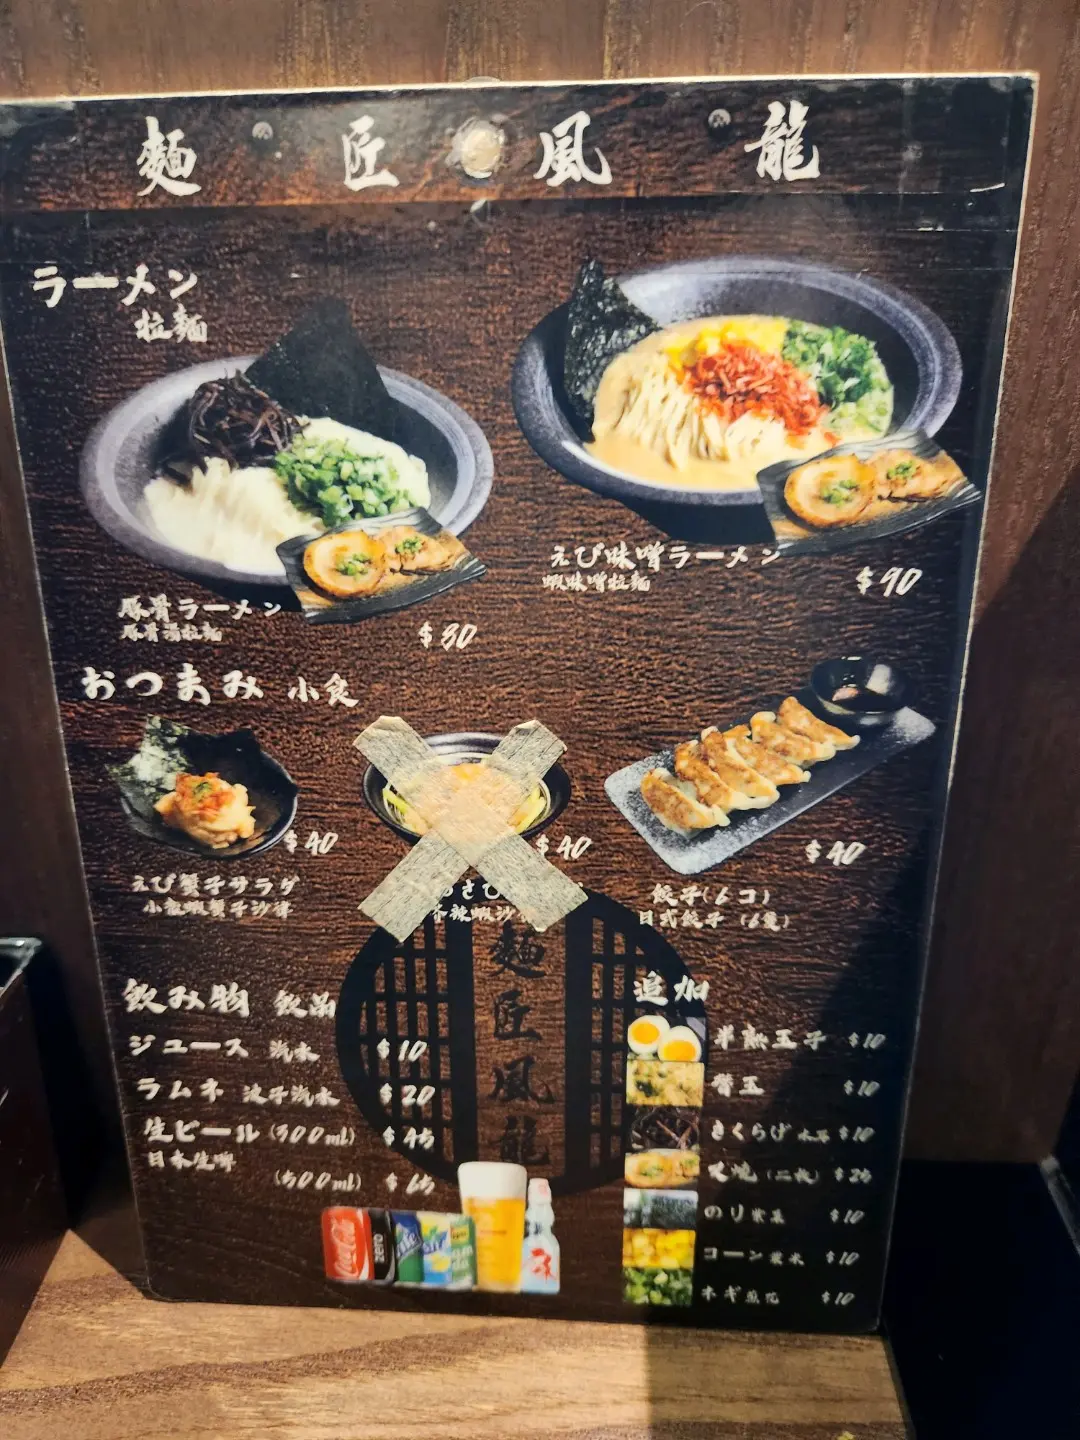 麵匠風龍
ラーメン
拉麵
豚骨ラーメン
豚骨湯拉麵
$80
えび味噌ラーメン
蝦味噌拉麵
$90
おつまみ 小食
$40
えび蟹子サラダ
小龍蝦蟹子沙律
$40
$40
餃子(6コ)
日式餃子 (6隻)
麵匠風龍
飲み物 飲品
ジュース 汽水 $10
ラムネ 波子汽水 $20
生ビール (300ml) $45
日本生啤
(500ml) $65
Coca-Cola
zero
追加
半熟玉子 $10
替玉 $10
きくらげ 木耳 $10
叉燒 (二枚) $25
のり 紫菜 $10
コーン 粟米 $10
ネギ 葱花 $10